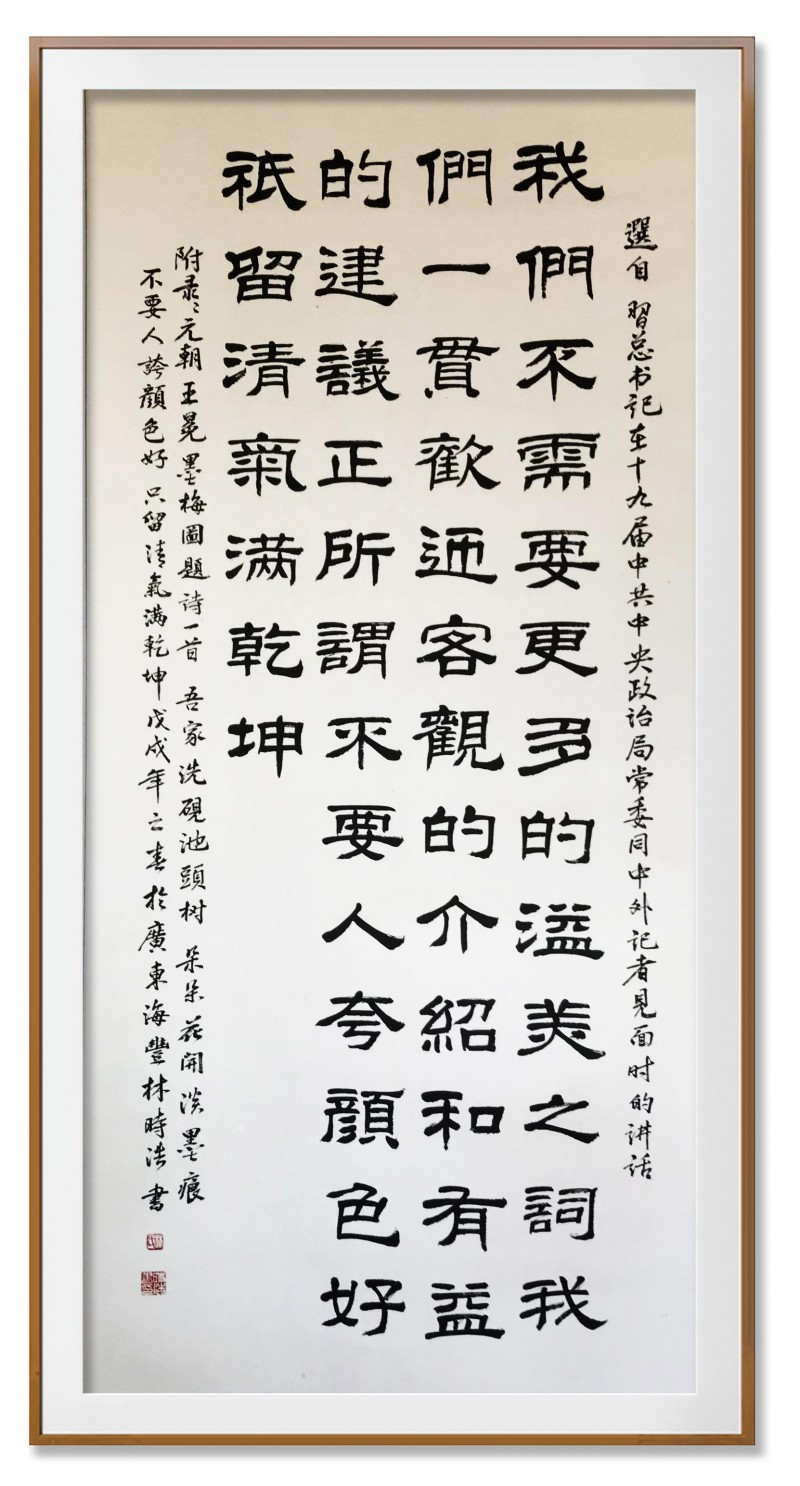 選自習总书记在十九届中共中央政治局常委同中外记者見面时的讲话
我們不需要更多的溢美之詞我
們一貫歡迎客觀的介紹和有益
的建議正所謂不要人夸顔色好
祇留清氣滿乾坤
附录元朝王冕墨梅圖題詩一首 吾家洗硯池頭树 朵朵花開淡墨痕
不要人誇顔色好 只留清氣满乾坤 戊戌年之春於廣東海豐林時浩書